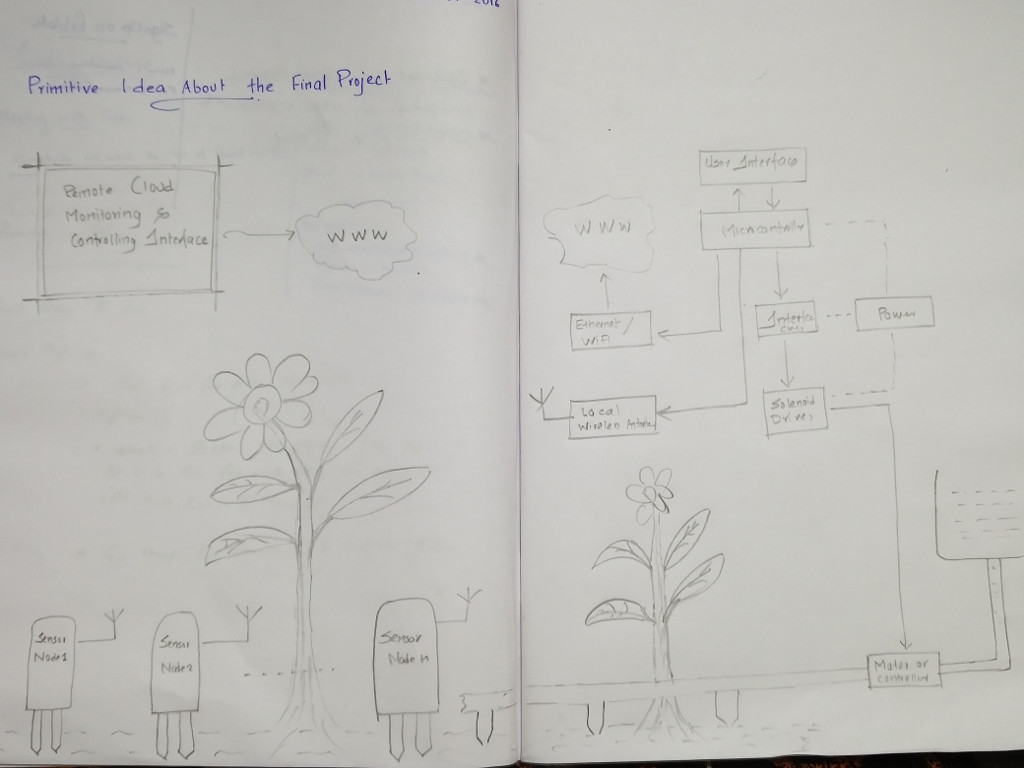 2016
Primitive Idea About the Final Project
Remote Cloud
Monitoring &
Controlling Interface
WWW
Sensor
Node1
Sensor
Node2
Sensor
Node n
User Interface
Microcontroller
WWW
Ethernet/
WiFi
Interface
Power
Local
Wireless
Solenoid
Driver
Motor or
Controller